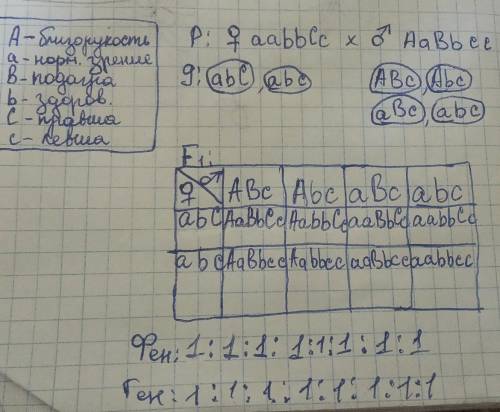 А - близорукость
а - норм. зрение
В - подагра
b - здоров.
С - правша
с - левша
P: ♀ aabbCc x ♂ AaBbcc
g: abC, abc ABc, Abc
aBc, abc
F₁:
♀ ♂ ABc Abc aBc abc
abC AaBbCc AabbCc aaBbCc aabbCc
abc AaBbcc Aabbcc aaBbcc aabbcc
Фен: 1:1:1:1:1:1:1:1
Ген: 1:1:1:1:1:1:1:1